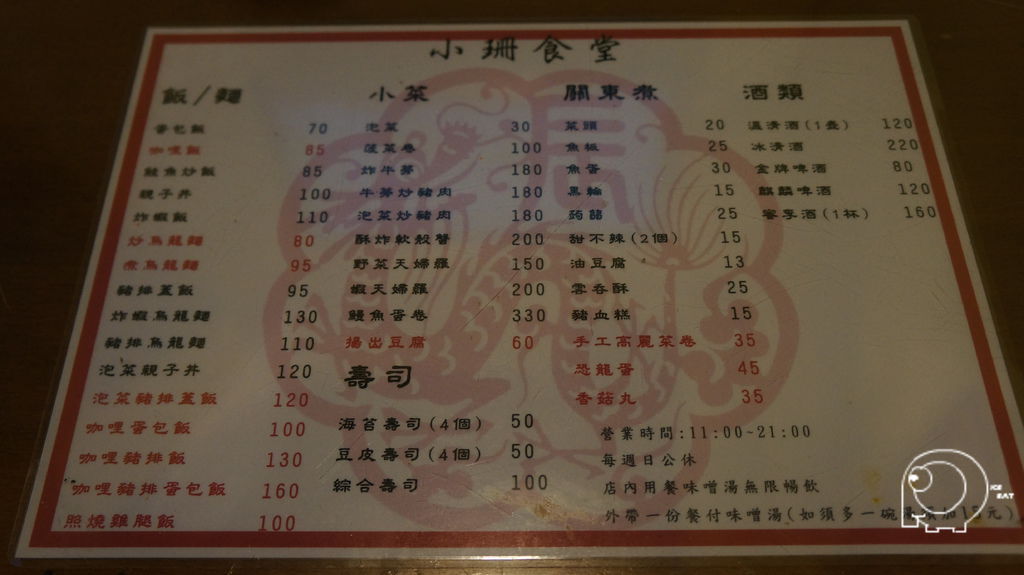 小珊食堂
飯/麵
蛋包飯 70
咖哩飯 85
鮭魚炒飯 85
親子丼 100
炸蝦飯 110
炒烏龍麵 80
煮烏龍麵 95
豬排蓋飯 95
炸蝦烏龍麵 130
豬排烏龍麵 110
泡菜親子丼 120
泡菜豬排蓋飯 120
咖哩蛋包飯 100
咖哩豬排飯 130
咖哩豬排蛋包飯 160
照燒雞腿飯 100
小菜
泡菜 30
菠菜卷 100
炸牛蒡 180
牛蒡炒豬肉 180
泡菜炒豬肉 180
酥炸軟殼蟹 200
野菜天婦羅 150
蝦天婦羅 200
鰻魚蛋卷 330
揚出豆腐 60
壽司
海苔壽司(4個) 50
豆皮壽司(4個) 50
綜合壽司 100
關東煮
菜頭 20
魚板 25
魚蛋 30
黑輪 15
蒟蒻 25
甜不辣(2個) 15
油豆腐 13
雲吞酥 25
豬血糕 15
手工高麗菜卷 35
恐龍蛋 45
香菇丸 35
酒類
溫清酒(1壺) 120
冰清酒 220
金牌啤酒 80
麒麟啤酒 120
響享酒(1杯) 160
營業時間:11:00~21:00
每週日公休
店內用餐味噌湯無限暢飲
外帶一份餐付味噌湯(如須多一碗湯須加15元)
ICE
EAT